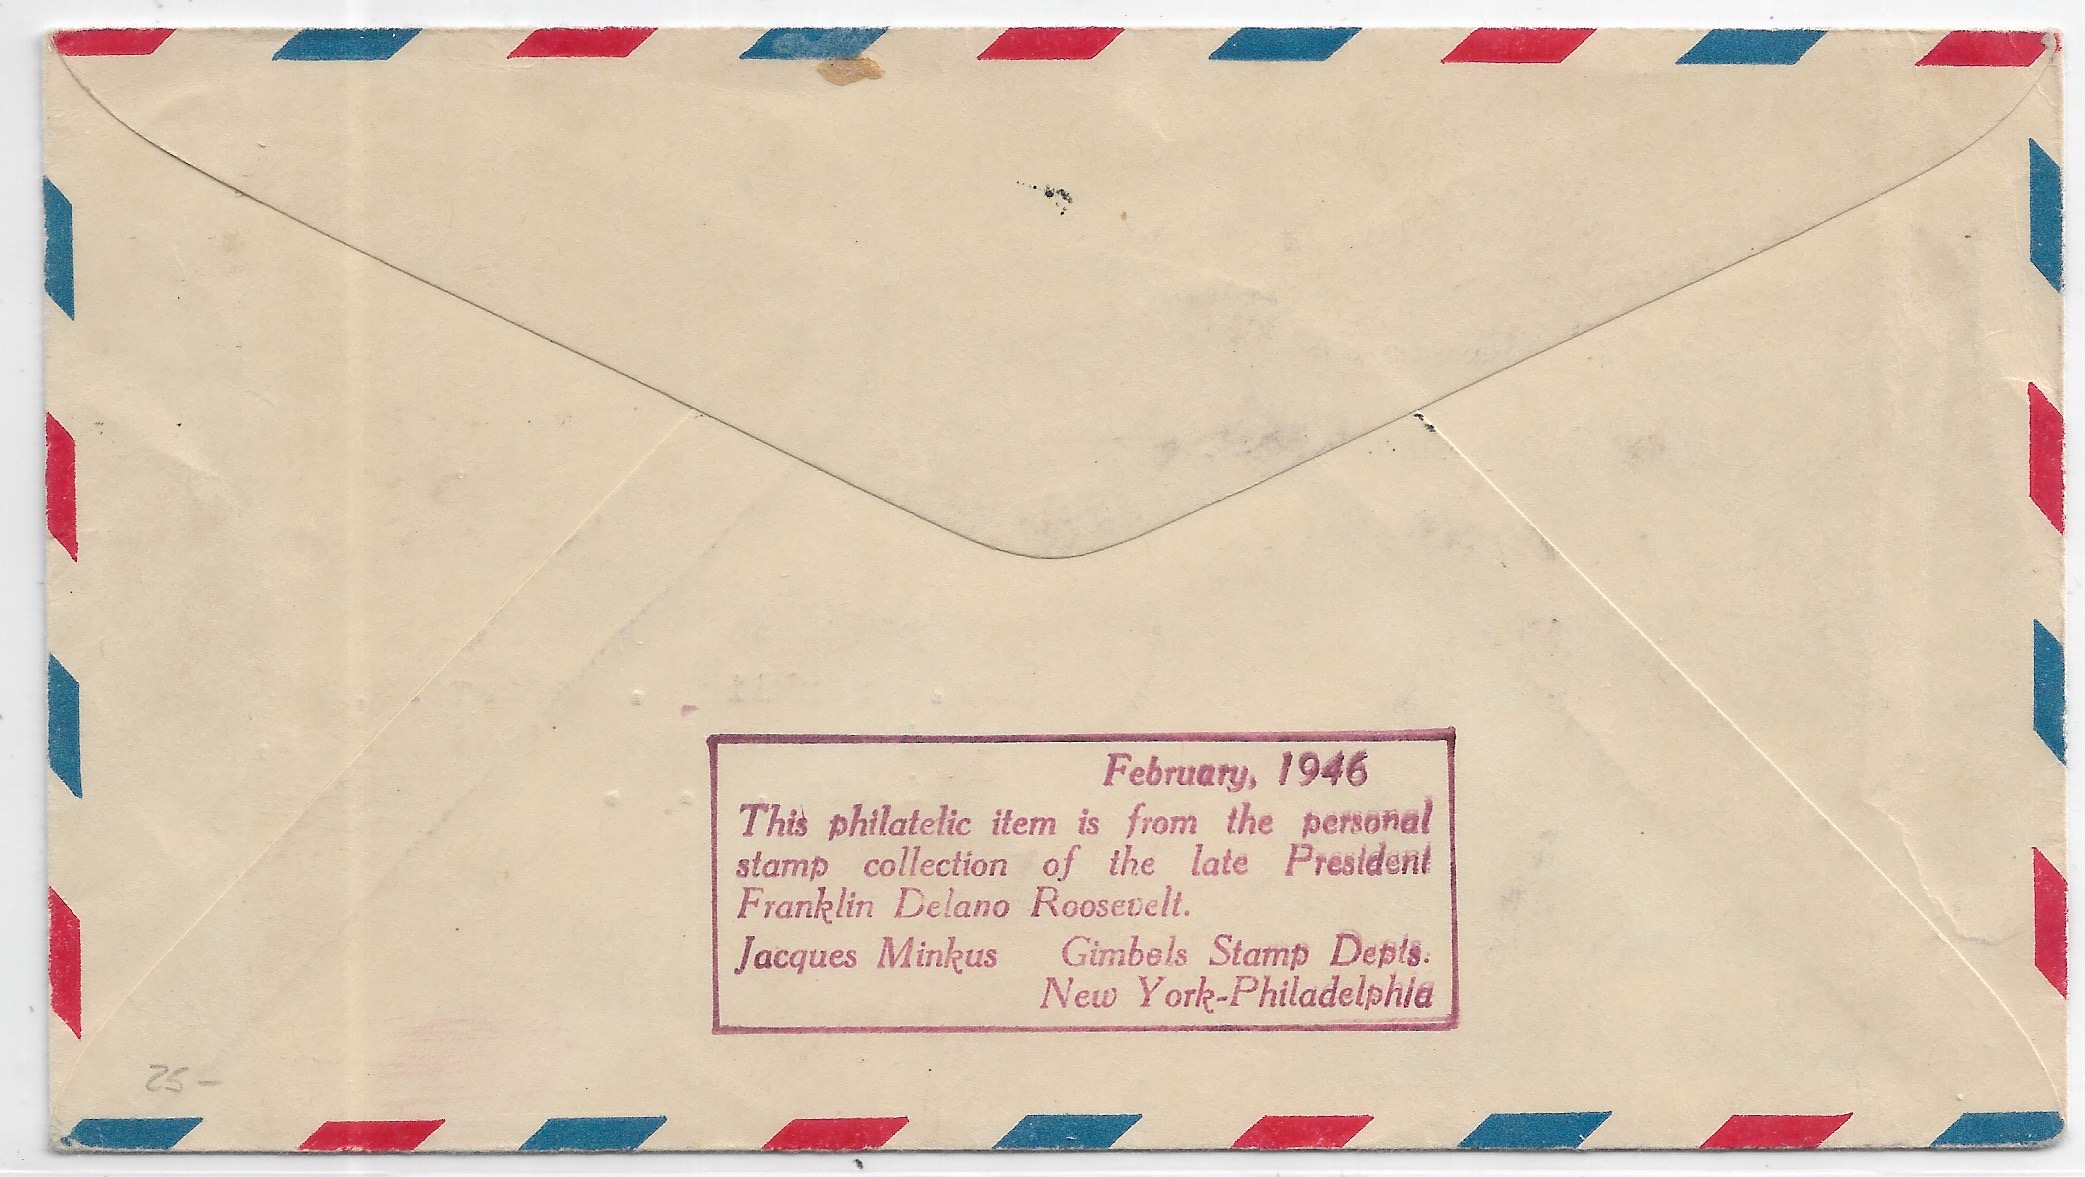 February, 1946
This philatelic item is from the personal
stamp collection of the late President
Franklin Delano Roosevelt.
Jacques Minkus Gimbels Stamp Depts.
New York-Philadelphia
25-